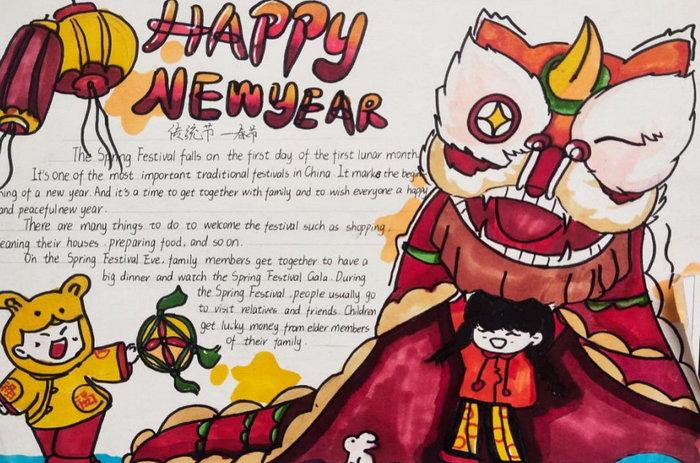 HAPPY
NEWYEAR
传统节—春节
The Spring Festival falls on the first day of the first lunar month
It's one of the most important traditional festivals in China. It marks the begin
ning of a new year. And it's a time to get together with family and to wish everyone a happy
and peaceful new year.
There are many things to do to welcome the festival such as shopping,
eaning their houses, preparing food, and so on.
On the Spring Festival Eve, family members get together to have a
big dinner and watch the Spring Festival Gala. During
the Spring Festival, people usually go
to visit relatives and friends. Children
get lucky money from elder members
of their family.
福
福